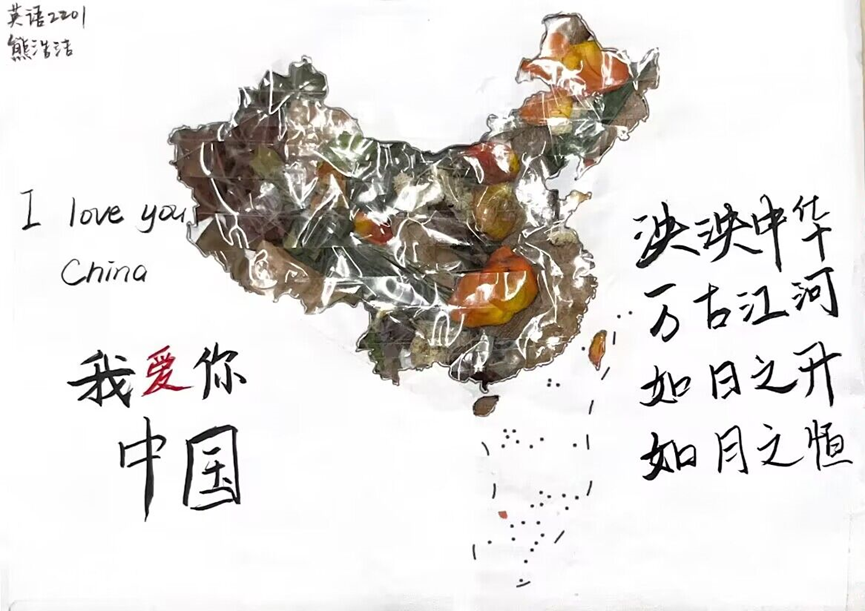 英语2201
熊浩洁
I love you
China
我爱你
中国
泱泱中华
万古江河
如日之升
如月之恒